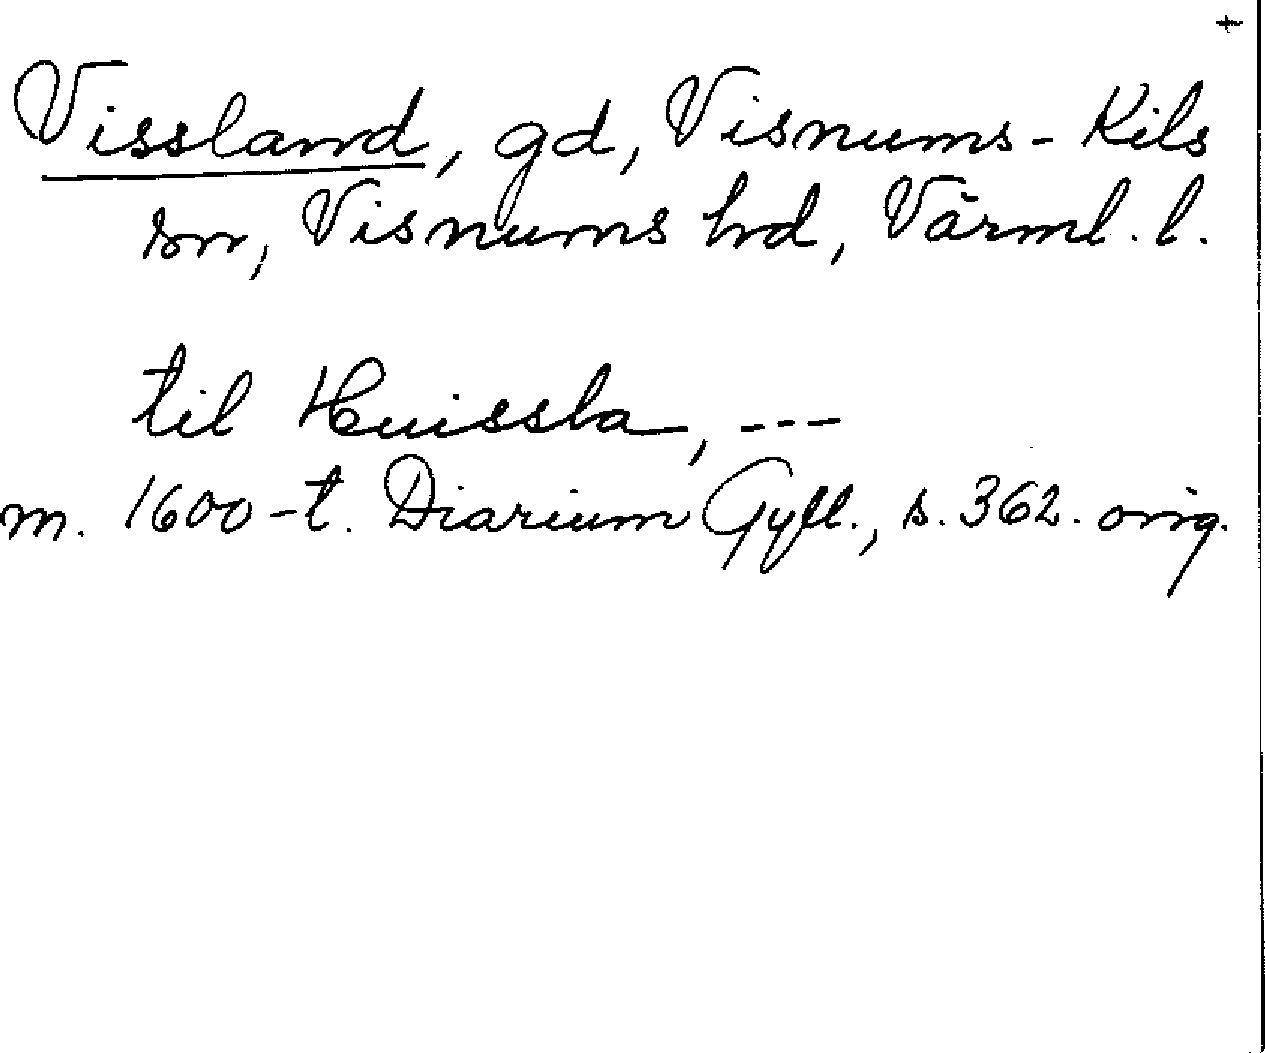 +
Vissland, gd, Visnums-Kils
sn, Visnums hd, Värml. l.
til Huissla, ---
m. 1600-t. Diarium Gyll., s. 362. orig.